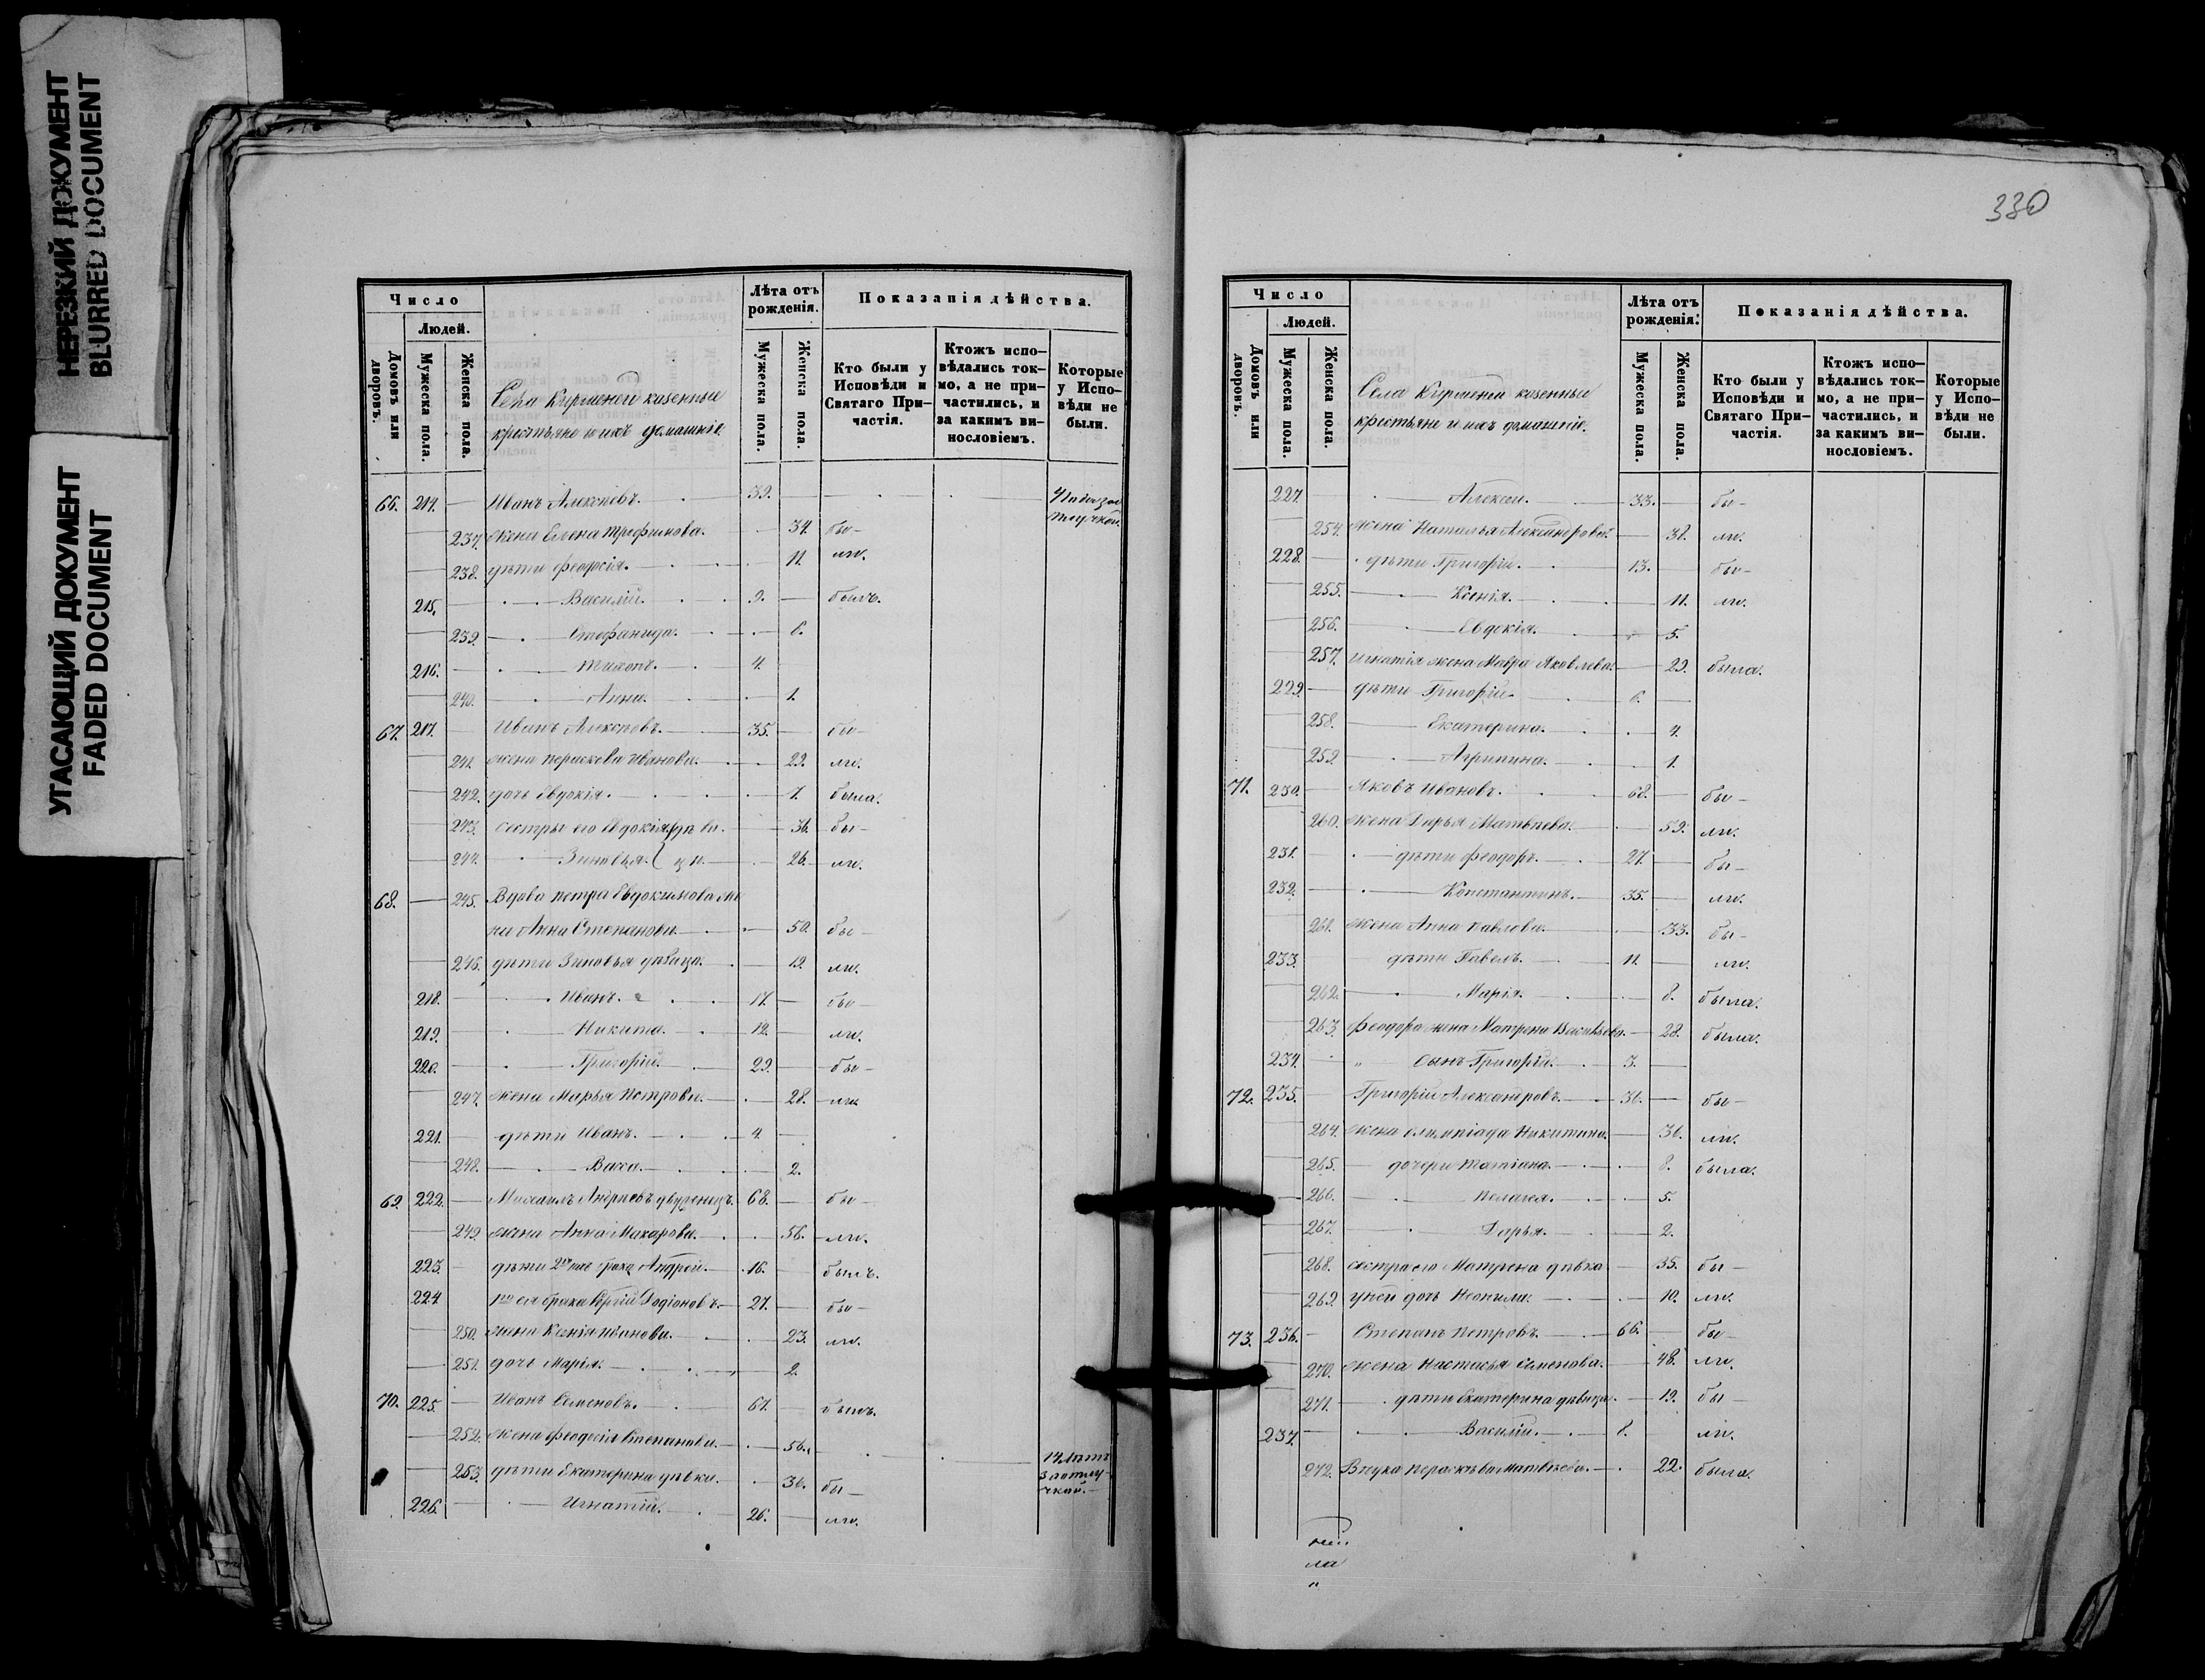 НЕРЕЗКИЙ ДОКУМЕНТ
BLURRED DOCUMENT
УГАСАЮЩИЙ ДОКУМЕНТ
FADED DOCUMENT
Число
Людей.
Домовъ или дворовъ.
Мужеска пола.
Женска пола.
Села Кирменей казенные
крестьяне и ихъ домашніе.
Лѣта отъ рожденія.
Мужеска пола.
Женска пола.
Показанія дѣйства.
Кто были у Исповѣди и Святаго Причастія.
Ктожъ испо-
вѣдались ток-
мо, а не при-
частились, и
за какимъ ви-
нословіемъ.
Которые
у Испо-
вѣди не
были.
66. 214. Иванъ Алексѣевъ. 39.
отлучкой.
237. жена Елена Трофимова. 34. бы-
238. дѣти Феодосія. 11. ли.
215. Василій. 9. былъ.
239. Стефанида. 6.
216. Тихонъ. 4.
240. Анна. 1.
67. 217. Иванъ Алексѣевъ. 35. бы-
241. жена Параскева Иванова. 29. ли.
242. дочь Евдокія. 7. была.
243. сестры его Евдокія 36. бы-
244. Зиновья. 26. ли.
68. 245. Вдова Петра Евдокимова же
на Анна Степанова. 50. бы-
246. дѣти Зиновья дѣвица. 19. ли.
218. Иванъ. 17. бы-
219. Никита. 12. ли.
220. Григорій. 29. бы-
247. жена Марья Петрова. 28. ли.
221. дѣти Иванъ. 4.
248. Васса. 2.
69. 222. Михаилъ Андреевъ двуженецъ. 68. бы-
249. жена Анна Макарова. 56. ли.
223. дѣти 2го брака Андрей. 16. былъ.
224. 1го ея брака Родіоновъ. 27. бы-
250. жена Ксенія Иванова. 23. ли.
251. дочь Марія. 2.
70. 225. Иванъ Семеновъ. 67. былъ.
252. жена Феодосія Степанова. 56. 14. лѣтъ
за отлу-
чкой.
253. дѣти Екатерина дѣвка. 36. бы-
226. Игнатій. 26. ли.
330
Число
Людей.
Домовъ или дворовъ.
Мужеска пола.
Женска пола.
Села Кирменей казенные
крестьяне и ихъ домашніе.
Лѣта отъ рожденія.
Мужеска пола.
Женска пола.
Показанія дѣйства.
Кто были у Исповѣди и Святаго Причастія.
Ктожъ испо-
вѣдались ток-
мо, а не при-
частились, и
за какимъ ви-
нословіемъ.
Которые
у Испо-
вѣди не
были.
227. Алексѣй. 33. бы-
254. жена Наталья Александрова. 38. ли.
228. дѣти Григорій. 13. бы-
255. Ксенія. 11. ли.
256. Евдокія. 5.
257. Игнатія жена Мавра Яковлева. 29. была.
229. дѣти Григорій. 6.
258. Екатерина. 4.
259. Агрипина. 1.
71. 230. Яковъ Ивановъ. 68. бы-
260. жена Дарья Матвѣева. 59. ли.
231. дѣти Феодоръ. 27. бы-
232. Константинъ. 35. ли.
261. жена Анна Павлова. 33. бы-
233. дѣти Павелъ. 11. ли.
262. Марія. 8. была.
263. Феодора жена Матрена Васильева. 28. была.
234. сынъ Григорій. 3.
72. 235. Григорій Александровъ. 36. бы-
264. жена Олимпіада Никитина. 36. ли.
265. дочери Татіана. 8. была.
266. Пелагея. 5.
267. Дарья. 2.
268. сестра его Матрена дѣвка. 35. бы-
269. у ней дочь Неонила. 10. ли.
73. 236. Степанъ Петровъ. 66. бы-
270. жена Настасья Семенова. 48. ли.
271. дѣти Екатерина дѣвица. 19. бы-
237. Василій. 8. ли.
272. Внука Параскева Матвѣева. 22. была.
ла
"